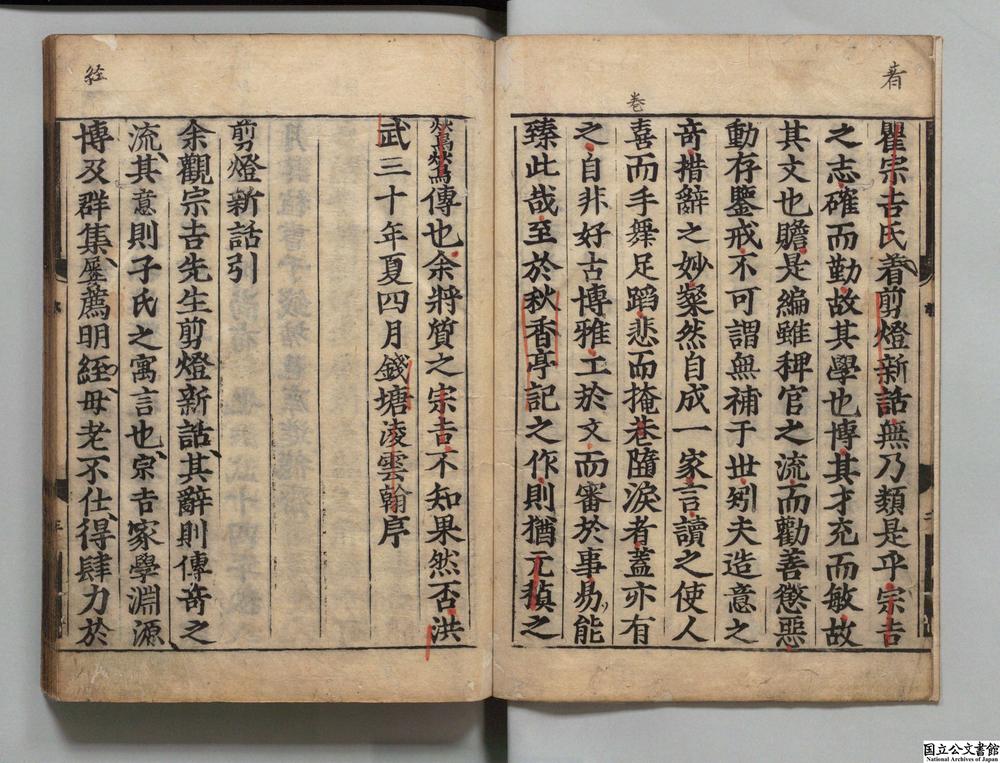 着
卷
瞿宗吉氏着剪燈新話無乃類是乎宗吉
之志確而勤故其學也博其才充而敏故
其文也贍是編雖稗官之流而勸善懲惡
動存鑒戒不可謂無補于世矧夫造意之
奇措辭之妙粲然自成一家言讀之使人
喜而手舞足蹈悲而掩卷墮淚者蓋亦有
之自非好古博雅工於文而審於事曷能
臻此哉至於秋香亭記之作則猶元稹之
鶯鶯傳也余將質之宗吉不知果然否洪
武三十年夏四月錢塘凌雲翰序
剪燈新話引
余觀宗吉先生剪燈新話其辭則傳奇之
流其意則子氏之寓言也宗吉家學淵源
博及群集屢薦明經母老不仕得肆力於
経
国立公文書館
National Archives of Japan